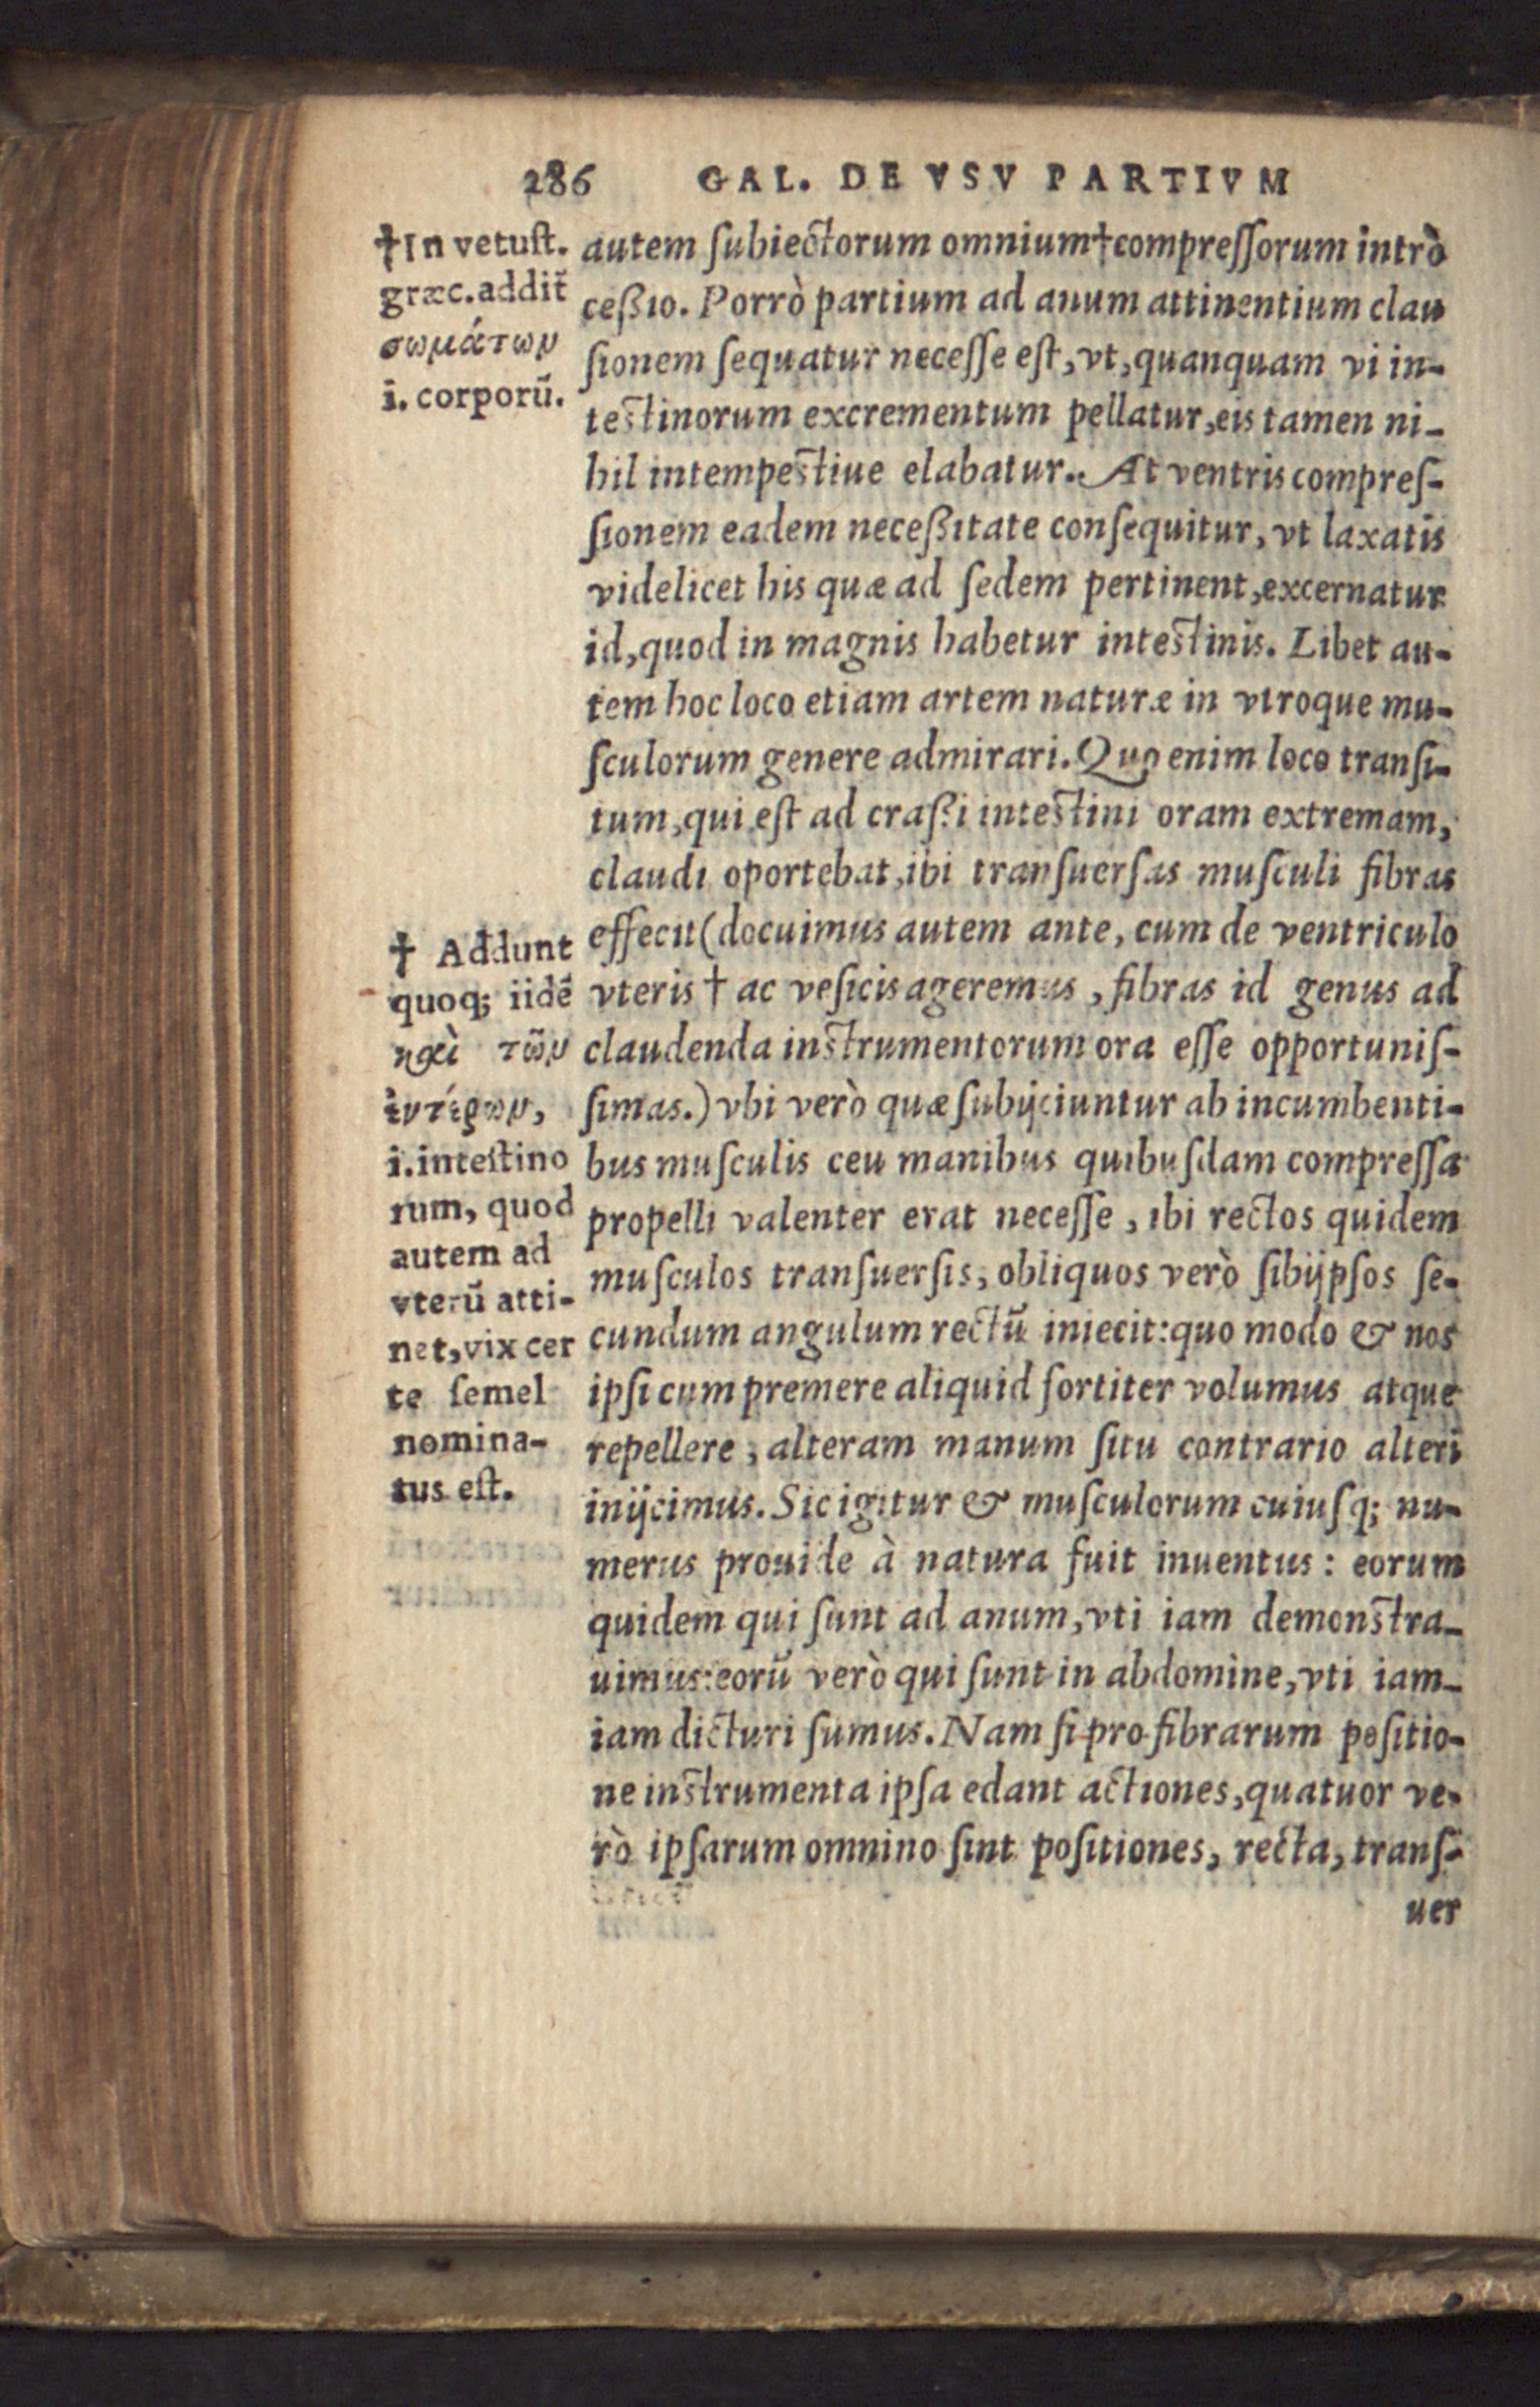 286 GAL. DE VSV PARTIVM
†In vetuſt.
græc.addit̃
σωμάτων
i. corporũ.
autem ſubiectorum omnium†compreſſorum intrò
ceßio. Porrò partium ad anum attinentium clau
ſionem ſequatur neceſſe eſt,vt,quanquam vi in-
teſtinorum excrementum pellatur,eis tamen ni-
hil intempeſtiue elabatur. At ventris compreſ-
ſionem eadem neceßitate conſequitur, vt laxatis
videlicet his quæ ad ſedem pertinent,excernatur
id,quod in magnis habetur inteſtinis. Libet au-
tem hoc loco etiam artem naturæ in vtroque mu-
ſculorum genere admirari. Quo enim loco tranſi-
tum,qui eſt ad craßi inteſtini oram extremam,
claudi oportebat,ibi tranſuerſas muſculi fibras
effecit (docuimus autem ante, cum de ventriculo
vteris † ac veſicis ageremus, fibras id genus ad
claudenda inſtrumentorum ora eſſe opportuniſ-
ſimas.) vbi verò quæ ſubijciuntur ab incumbenti-
bus muſculis ceu manibus quibuſdam compreſſa
propelli valenter erat neceſſe, ibi rectos quidem
muſculos tranſuerſis, obliquos verò ſibijpſos ſe-
cundum angulum rectũ iniecit:quo modo & nos
ipſi cum premere aliquid fortiter volumus atque
repellere, alteram manum ſitu contrario alteri
inijcimus. Sic igitur & muſculorum cuiuſq; nu-
merus prouide à natura fuit inuentus: eorum
quidem qui ſunt ad anum,vti iam demonſtra-
uimus:eorũ verò qui ſunt in abdomine,vti iam-
iam dicturi ſumus. Nam ſi pro fibrarum poſitio-
ne inſtrumenta ipſa edant actiones,quatuor ve-
rò ipſarum omnino ſint poſitiones, recta, tranſ-
uer
† Addunt
quoq; iidẽ
καὶ τῶν
ἐντέρων,
i.inteſtino
rum, quod
autem ad
vterũ atti-
net,vix cer
te ſemel
nomina-
tus eſt.